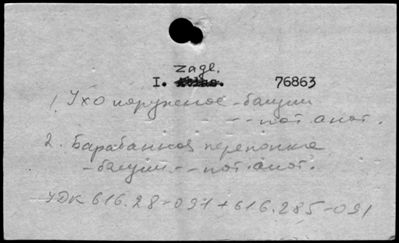 zagl.
I. 76863
1. Ухо наружное - бацилл
-- пат. анат.
2. Барабанная перепонка
- бацилл. -- пат. анат.
УДК 616.28-091+616.285-091